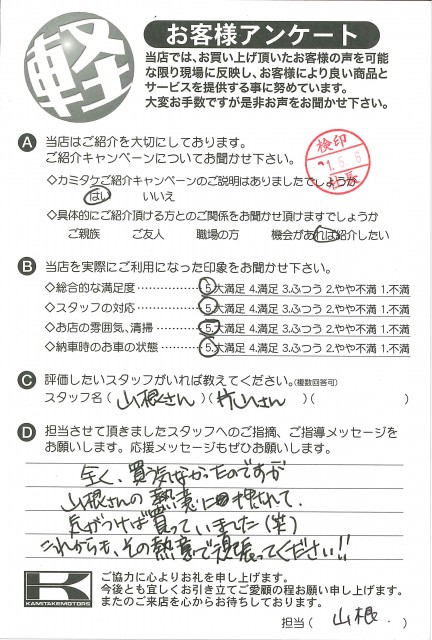 軽
お客様アンケート
当店では、お買い上げ頂いたお客様の声を可能
な限り現場に反映し、お客様により良い商品と
サービスを提供する事に努めています。
大変お手数ですが是非お声をお聞かせ下さい。
A 当店はご紹介を大切にしております。
ご紹介キャンペーンについてお聞かせ下さい。
検印
21.5.6
社長
◇カミタケご紹介キャンペーンのご説明はありましたでしょうか
はい いいえ
◇具体的にご紹介頂ける方とのご関係をお聞かせ頂けますでしょうか
ご親族 ご友人 職場の方 機会があれば紹介したい
B 当店を実際にご利用になった印象をお聞かせ下さい。
◇総合的な満足度 5.大満足 4.満足 3.ふつう 2.やや不満 1.不満
◇スタッフの対応 5.大満足 4.満足 3.ふつう 2.やや不満 1.不満
◇お店の雰囲気、清掃 5.大満足 4.満足 3.ふつう 2.やや不満 1.不満
◇納車時のお車の状態 5.大満足 4.満足 3.ふつう 2.やや不満 1.不満
C 評価したいスタッフがいれば教えてください。(複数回答可)
スタッフ名(山根さん)(片山さん)( )
D 担当させて頂きましたスタッフへのご指摘、ご指導メッセージを
お願いします。応援メッセージもぜひお願いします。
全く、買う気なかったのですが
山根さんの熱意に押されて、
気がつけば買っていました(笑)
これからも、その熱意で頑張ってください!!
K
KAMITAKEMOTORS
ご協力に心よりお礼を申し上げます。
今後とも宜しくお引き立てご愛顧の程お願い申し上げます。
またのご来店を心からお待ちしております。
担当( 山根 )